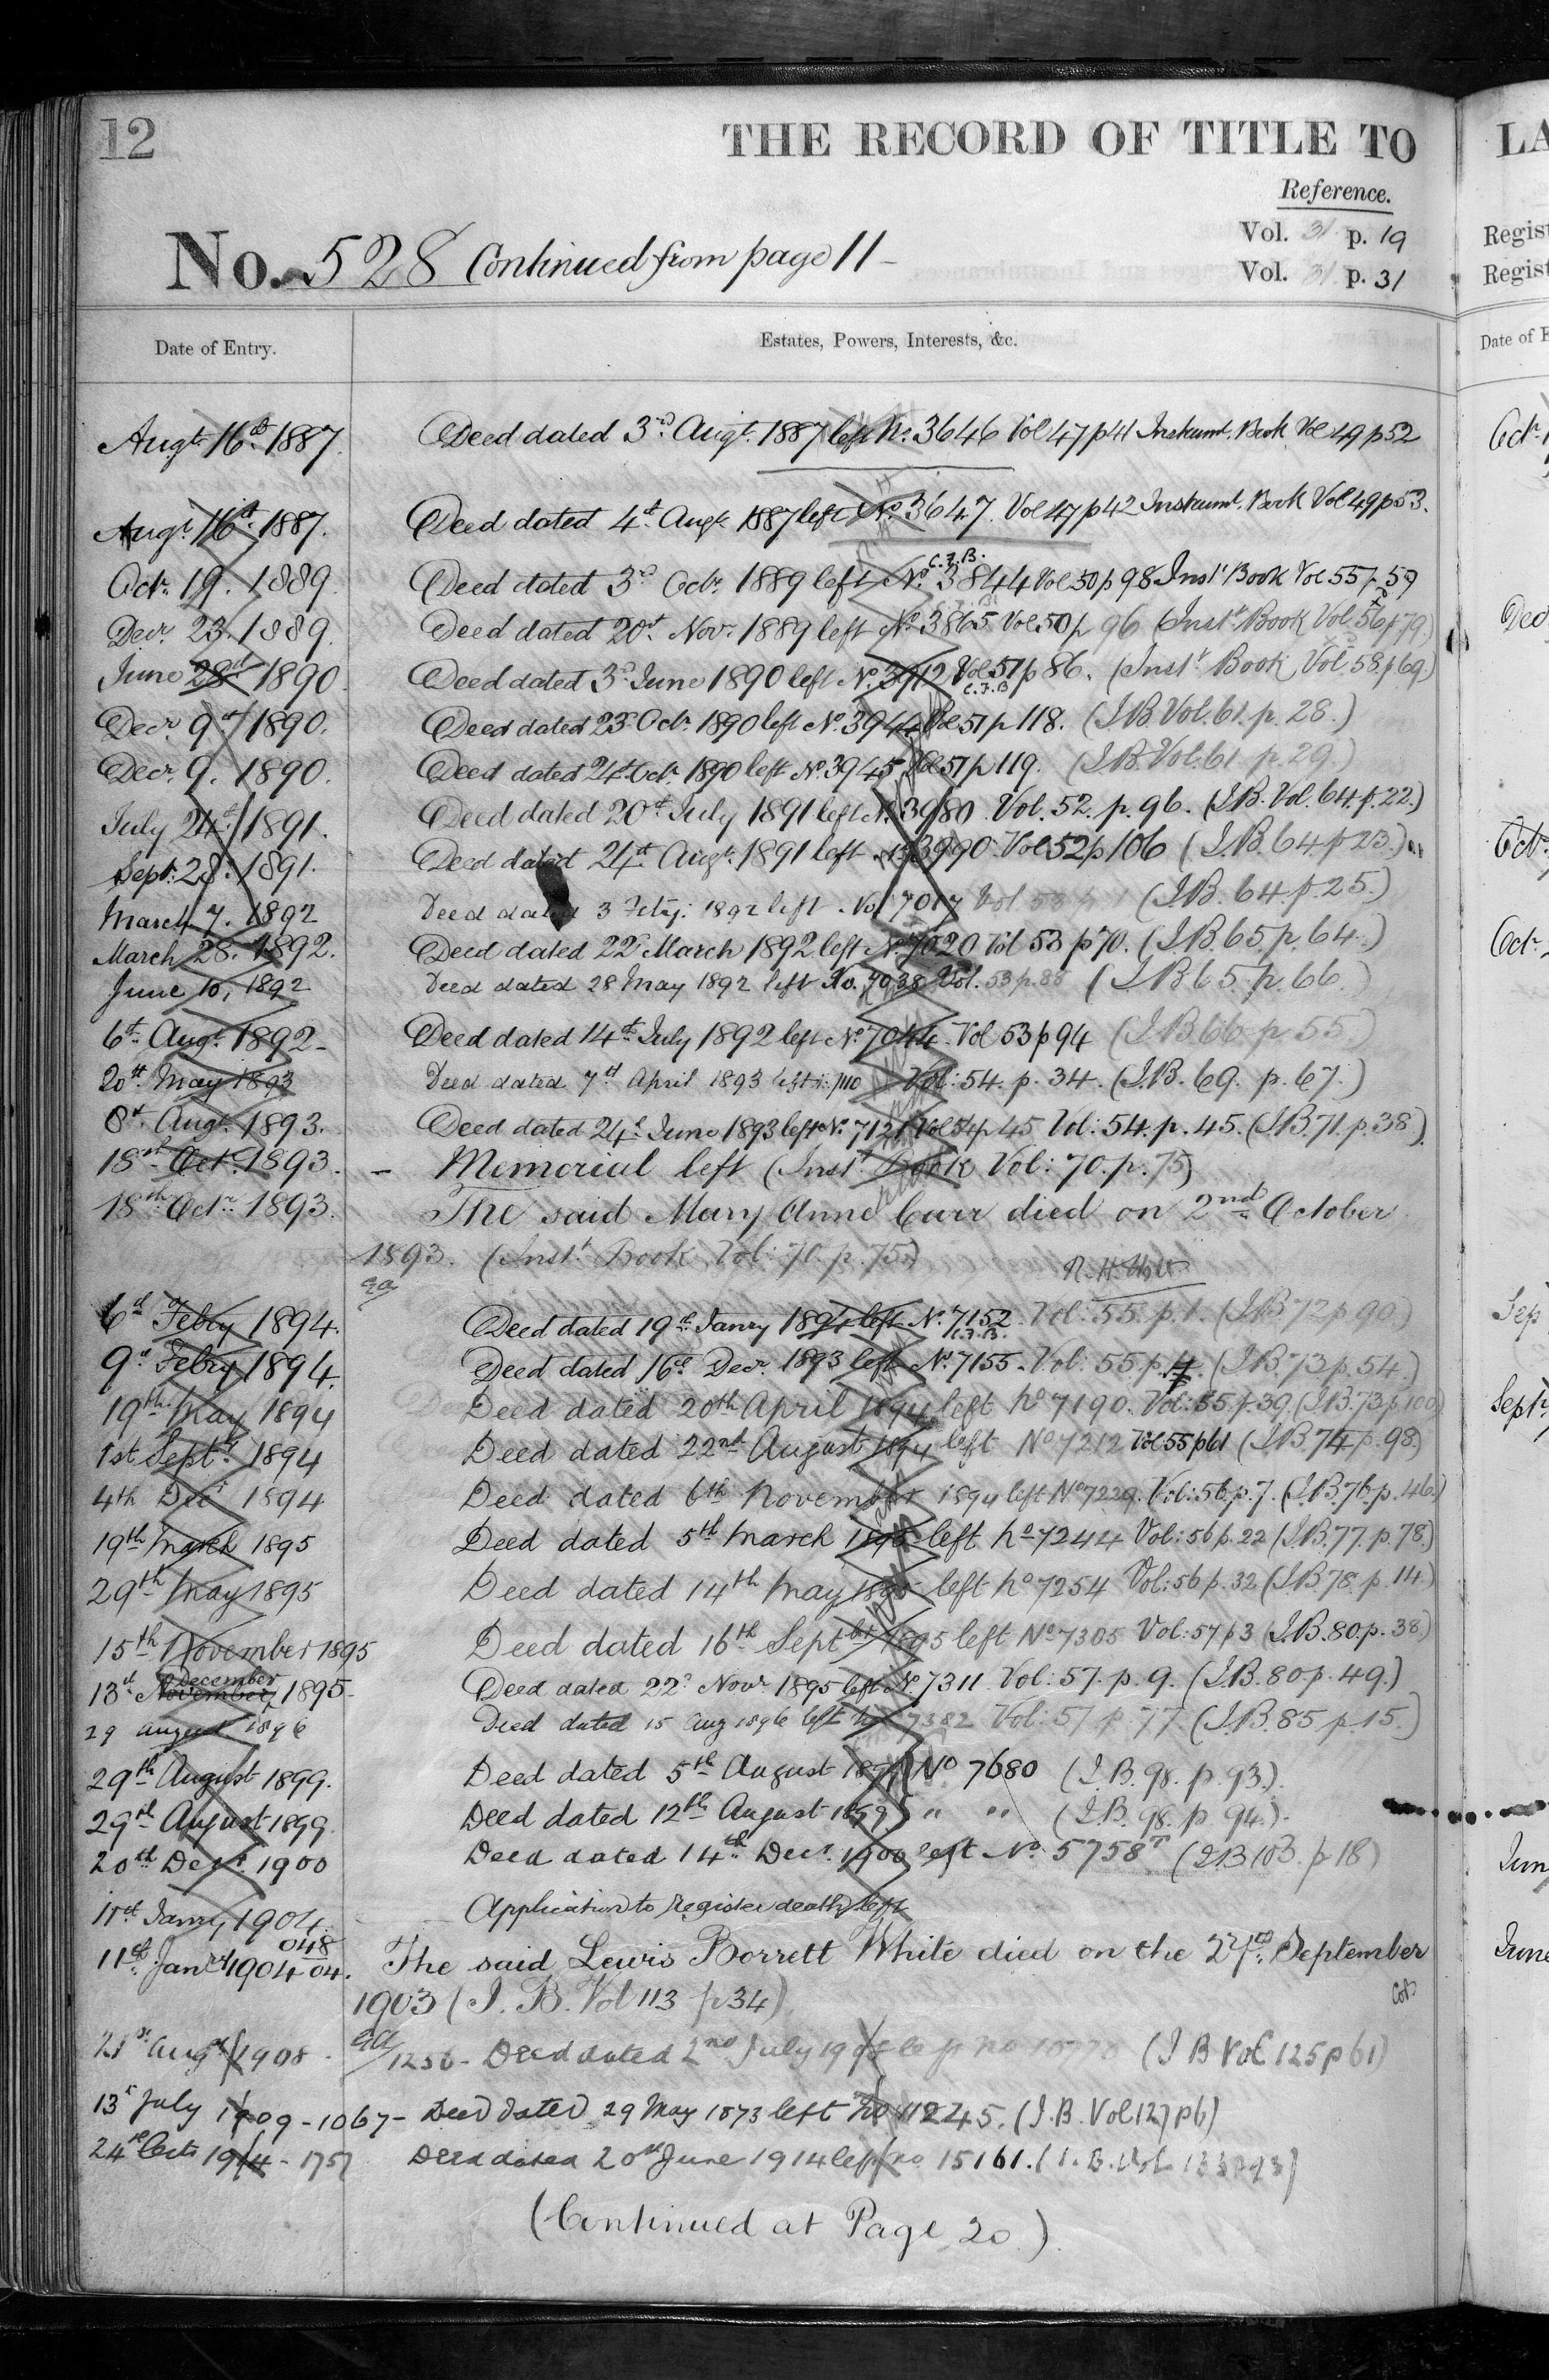 12
THE RECORD OF TITLE TO
Reference.
No. 528 Continued from page 11 —
Vol. 31 p. 19
Vol. 31 p. 31
Date of Entry.
Estates, Powers, Interests, &c.
Augt. 16th 1887. Deed dated 3rd Augt. 1887 left No. 3646 Vol 47 p 41 Instrumt. Book Vol 49 p 52
Augt. 16th 1887. Deed dated 4th Augt. 1887 left No. 3647. Vol 47 p 42 Instrumt. Book Vol 49 p 53.
C.F.B.
Octr. 19. 1889. Deed dated 3d Octr. 1889 left No. 3844 Vol 50 p 98 Inst Book Vol 55 p 59
Decr. 23. 1889. Deed dated 20th Novr. 1889 left No. 3865 Vol 50 p 96 (Instt. Book Vol. 56 p 79.)
June 28th 1890. Deed dated 3d June 1890 left No. 3912 Vol 51 p 86. (Instt. Book Vol. 58 p 69)
C.F.B
Decr. 9th 1890. Deed dated 23d Octr. 1890 left No. 3944 Vol 51 p 118. (I.B Vol. 61. p. 28.)
Decr. 9. 1890. Deed dated 24th Octr. 1890 left No. 3945 Vol 51 p 119. (I.B. Vol. 61 p. 29.)
July 24th 1891. Deed dated 20th July 1891 left No. 3980. Vol. 52. p. 96. (I.B. Vol. 64. p. 22.)
Sept. 28. 1891. Deed dated 24th Augt. 1891 left No. 3990 Vol 52 p 106 (I.B. 64. p 23.)
March 7. 1892 Deed dated 3 Feby: 1892 left No. 7017 Vol 53 p (I.B. 64. p. 25.)
March 28. 1892. Deed dated 22d March 1892 left No. 7020 Vol 53 p 70. (I.B. 65. p. 64.)
June 10, 1892 Deed dated 28 May 1892 left No. 7038 Vol. 53 p. 88 (I.B 65. p. 66.)
6th Augt. 1892 - Deed dated 14th July 1892 left No. 7044. Vol 53 p 94 (I.B 66 p. 55.)
20th May 1893 Deed dated 7th April 1893 left No. 7110 Vol: 54. p. 34. (I.B. 69. p. 67.)
8th Augt. 1893. Deed dated 24th June 1893 left No. 7121 Vol 54 p 45 Vol: 54. p. 45. (I.B. 71. p. 38.)
18th Oct. 1893. - Memorial left (Instt. Book Vol: 70. p. 75)
18th Octr. 1893. The said Mary Anne Carr died on 2nd October
1893. (Instt. Book Vol: 70. p. 75.)
6th Febry 1894. Deed dated 19th Janry 1894 left No. 7152 Vol: 55. p. 1. (I.B. 72 p. 90.)
C.F.B.
9th Febry 1894. Deed dated 16th Decr. 1893 left No. 7155. Vol: 55. p. 4. (I.B. 73 p. 54.)
19th May 1894 Deed dated 20th April 1894 left No 7190. Vol: 55. p. 39. (I.B. 73 p 100)
1st Septr. 1894 Deed dated 22nd August 1894 left No 7212 Vol 55 p 61 (I.B. 74 p. 98.)
4th Decr 1894 Deed dated 6th November 1894 left No 7229. Vol: 56. p. 7. (I.B. 76. p. 46.)
19th March 1895 Deed dated 5th March 1895 left No 7244 Vol: 56 p. 22 (I.B. 77. p. 78.)
29th May 1895 Deed dated 14th May 1895 left No 7254 Vol: 56 p. 32 (I.B. 78. p. 14.)
15th November 1895 Deed dated 16th Septbr 1895 left No 7305 Vol: 57 p 3 (I.B. 80. p. 38.)
December
13th November 1895 - Deed dated 22d Novr. 1895 left No. 7311 Vol: 57. p. 9. (I.B. 80 p. 49.)
29 august 1896 Deed dated 15 Aug 1896 left No 7382 Vol: 57 p. 77. (I.B. 85 p. 15.)
29th August 1899. Deed dated 5th August 1899 No 7680 (I.B. 98. p. 93.).
29th August 1899. Deed dated 12th August 1899 " " (I.B. 98. p 94.).
20th Decr. 1900 Deed dated 14th Decr. 1900 left No. 5758T (I.B 103. p 18)
11th Janry 1904. Application to register death left
11th Janry 1904 048/04. The said Lewis Borrett White died on the 27th September
1903 (I. B. Vol 113 p 34)
21st Augt 1908 - 1256 - Deed dated 2nd July 1908 left no 10770 (I B Vol 125 p 61)
13th July 1909 - 1067 - Deed dated 29 May 1873 left No 11245. (I.B. Vol 127 p 6)
24th Octr 1914 - 1757 Deed dated 20th June 1914 left no 15161. (I. B. Vol 133 p 98)
(Continued at Page 20.)
LA
Regist
Regist
Date of E
Octr.
Dec
Octr.
Octr.
Sep
Septr
June
June